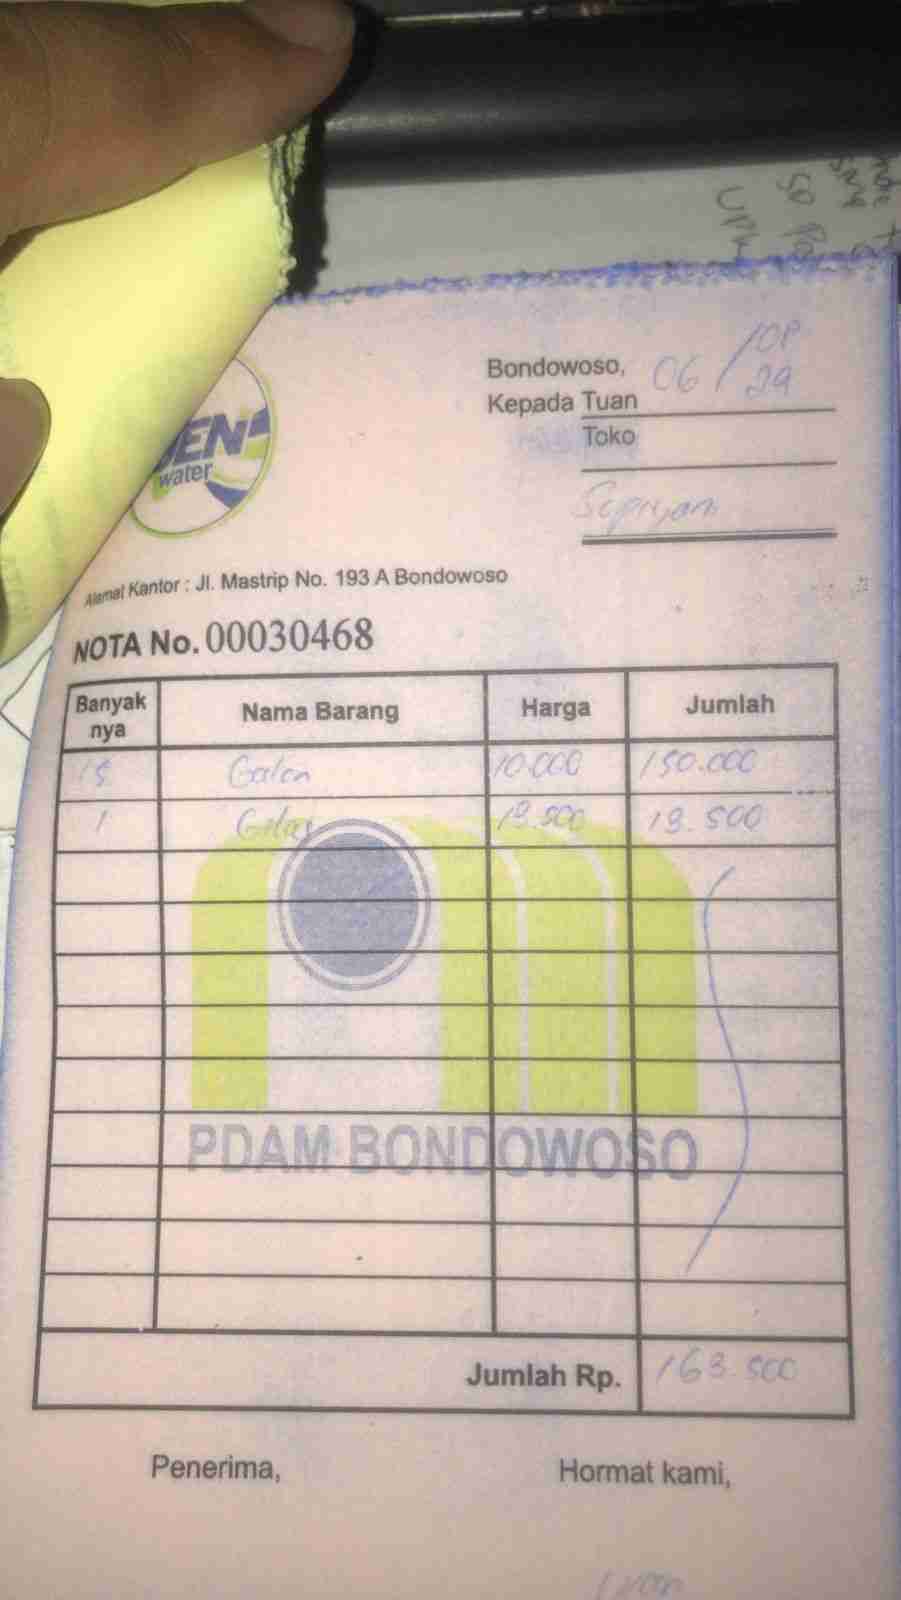 Bondowoso, 06/08
Kepada Tuan 24
Toko
water
Alamat Kantor : Jl. Mastrip No. 193 A Bondowoso
NOTA No. 00030468
Banyak nya Nama Barang Harga Jumlah
15 Galon 10.000 150.000
1 Gelas 13.500 13.500
PDAM BONDOWOSO
Jumlah Rp. 163.500
Penerima, Hormat kami,